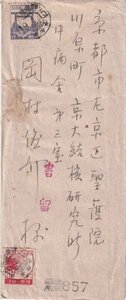 京都市左京区聖護院
川原町京大結核研究所
中病舎第三室
岡村
様
書留
857